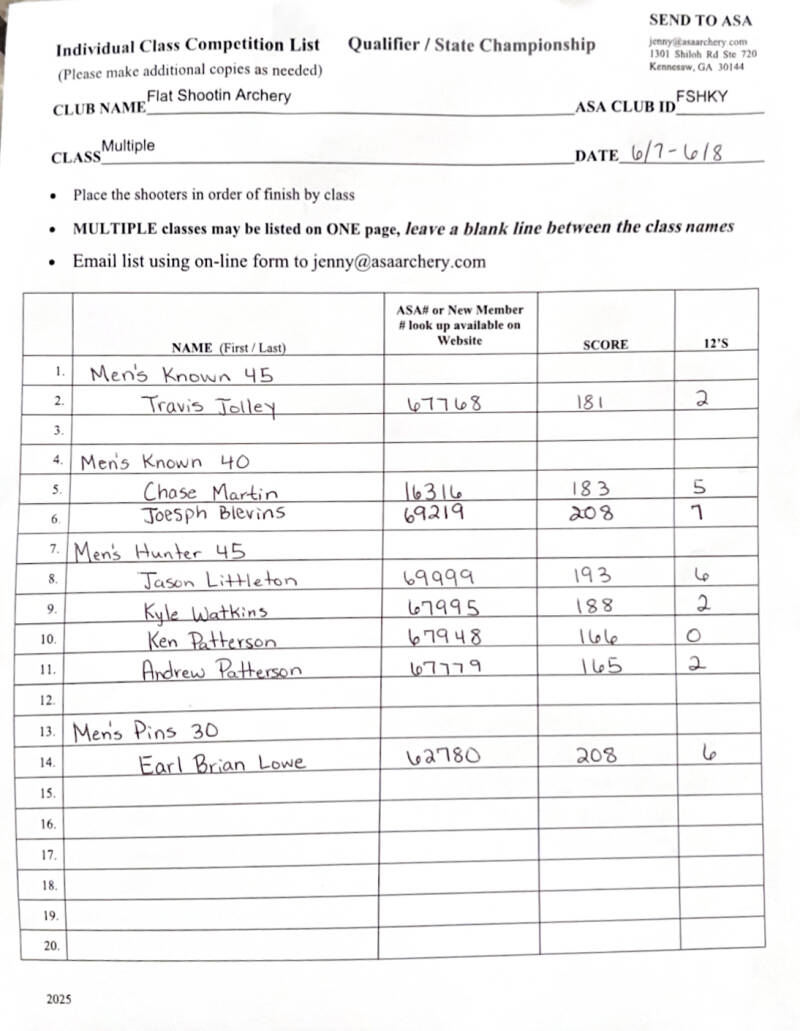 SEND TO ASA
Individual Class Competition List Qualifier / State Championship
jenny@asaarchery.com
1301 Shiloh Rd Ste 720
Kennesaw, GA 30144
(Please make additional copies as needed)
CLUB NAME Flat Shootin Archery ASA CLUB ID FSHKY
CLASS Multiple DATE 6/7-6/8
• Place the shooters in order of finish by class
• MULTIPLE classes may be listed on ONE page, leave a blank line between the class names
• Email list using on-line form to jenny@asaarchery.com
NAME (First / Last) ASA# or New Member # look up available on Website SCORE 12'S
1. Men's Known 45
2. Travis Jolley 67768 181 2
3.
4. Men's Known 40
5. Chase Martin 16316 183 5
6. Joesph Blevins 69219 208 7
7. Men's Hunter 45
8. Jason Littleton 69999 193 6
9. Kyle Watkins 67995 188 2
10. Ken Patterson 67948 166 0
11. Andrew Patterson 67779 165 2
12.
13. Men's Pins 30
14. Earl Brian Lowe 62780 208 6
15.
16.
17.
18.
19.
20.
2025